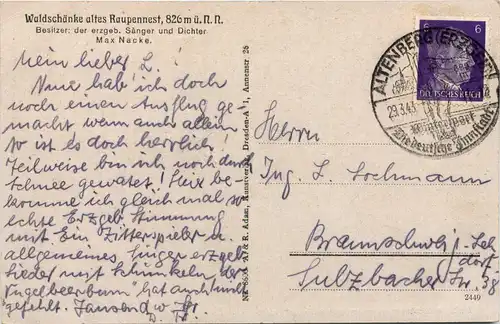 Waldschänke altes Raupennest, 826 m ü. N. N.
Besitzer: der erzgeb. Sänger und Dichter
Max Nacke.
Mein lieber L.!
Nun hab ich doch
noch einen Ausflug ge-
macht wenn auch allein
so ist es doch herrlich!
Teilweise bin ich noch durch
Schnee gewatet! Hier be-
komme ich gleich mal so
echte Erzgeb. Stimmung
mit. Ein Zitterspieler u.
allgemeines Singen erzgeb.
Lieder mit Schunkeln, der
"Vugelbeerbam" hat auch nicht
gefehlt. Tausend
Nr. A. & R. Adam, Kunstverlag, Dresden-A 1, Annenstr 26
6 6
DEUTSCHES REICH
ALTENBERG (ERZGEB)
29.3.43
Herrn
Ing. L. Lochmann
Braunschweig-Leh
dorf
Sulzbacher Str. 38
2449